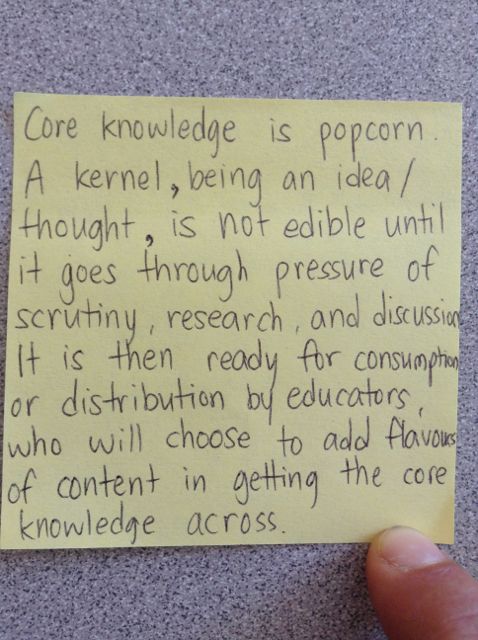 Core knowledge is popcorn.
A kernel, being an idea/
thought, is not edible until
it goes through pressure of
scrutiny, research, and discussion
It is then ready for consumption
or distribution by educators,
who will choose to add flavours
of content in getting the core
knowledge across.